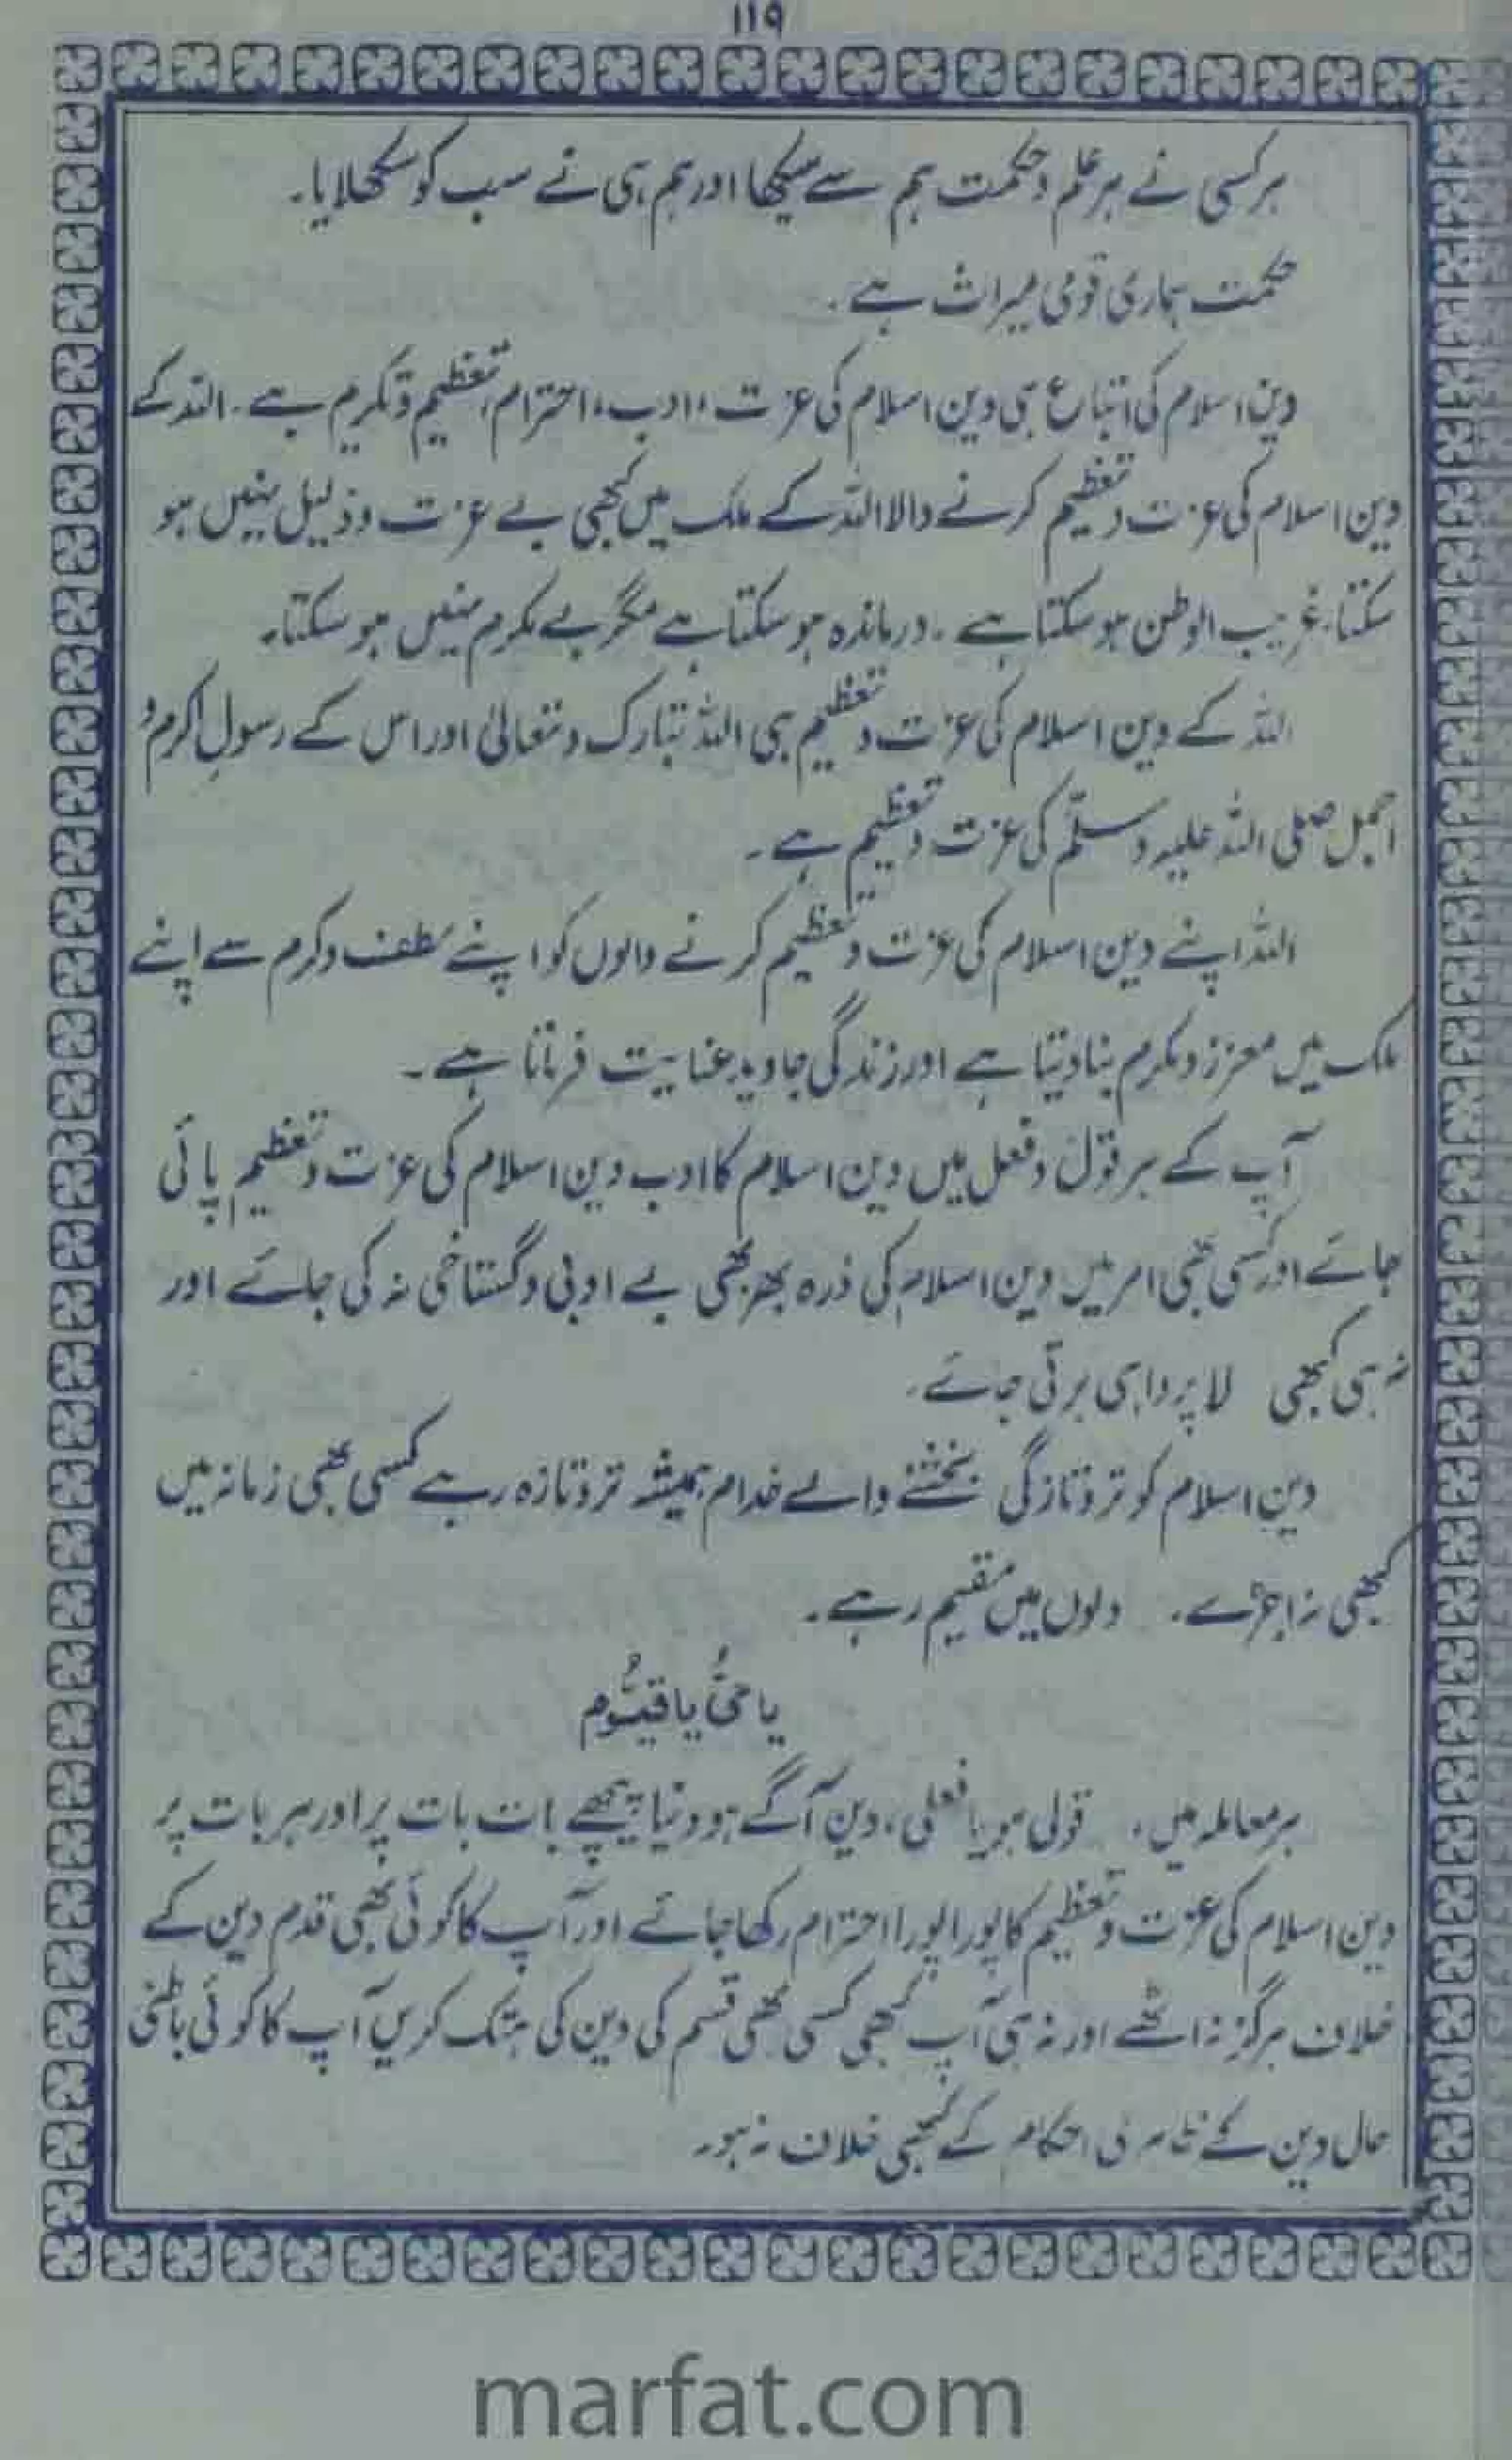 ۱۱۹
ہر کسی نے ہر علم و حکمت ہم سے سیکھا اور ہم ہی نے سب کو سکھلایا۔
حکمت ہماری قومی میراث ہے۔
دین اسلام کی اتباع ہی دین اسلام کی عزت، ادب، احترام، تعظیم و تکریم ہے۔ اللہ کے
دین اسلام کی عزت و تعظیم کرنے والا اللہ کے ملک میں کبھی بے عزت و ذلیل نہیں ہو
سکتا۔ غریب الوطن ہو سکتا ہے۔ درماندہ ہو سکتا ہے مگر بے مکرم نہیں ہو سکتا۔
اللہ کے دین اسلام کی عزت و تعظیم ہی اللہ تبارک و تعالیٰ اور اس کے رسولِ اکرم و
اجمل صلی اللہ علیہ وسلّم کی عزت و تعظیم ہے۔
اللہ اپنے دین اسلام کی عزت و تعظیم کرنے والوں کو اپنے لطف و کرم سے اپنے
ملک میں معزز و مکرم بنا دیتا ہے اور زندگی جاوید عنایت فرماتا ہے۔
آپ کے ہر قول و فعل میں دین اسلام کا ادب دین اسلام کی عزت و تعظیم پائی
جائے اور کسی بھی امر میں دین اسلام کی ذرہ بھر بھی بے ادبی و گستاخی نہ کی جائے اور
نہ ہی کبھی لا پرواہی برتی جائے۔
دینِ اسلام کو تر و تازگی بخشنے والے خدام ہمیشہ تر و تازہ رہے کسی بھی زمانہ میں
کبھی نہ اجڑے۔ دلوں میں مقیم رہے۔
یا حیُّ یا قیُّومُ
ہر معاملہ میں، قولی ہو یا فعلی، دین آگے ہو دنیا پیچھے بات بات پر اور ہر بات پر
دین اسلام کی عزت و تعظیم کا پورا پورا احترام رکھا جائے اور آپ کا کوئی بھی قدم دین کے
خلاف ہرگز نہ اٹھے اور نہ ہی آپ کبھی کسی بھی قسم کی دین کی ہتک کریں آپ کا کوئی باطنی
حال دین کے ظاہری احکام کے کبھی خلاف نہ ہو۔
marfat.com